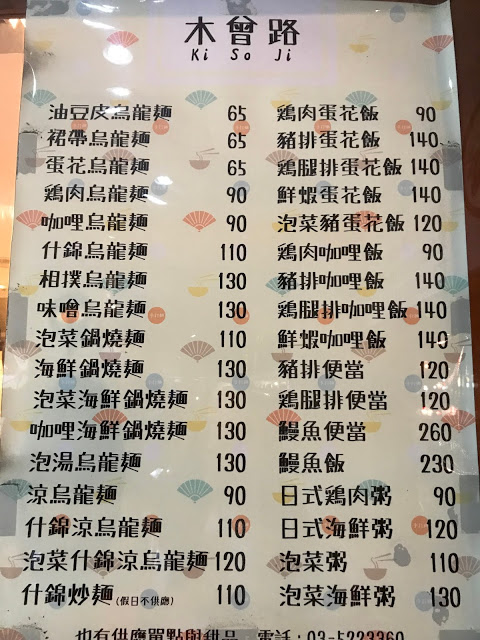 木曾路
Ki So Ji
油豆皮烏龍麵 65
裙帶烏龍麵 65
蛋花烏龍麵 65
鶏肉烏龍麵 90
咖哩烏龍麵 90
什錦烏龍麵 110
相撲烏龍麵 130
味噌烏龍麵 130
泡菜鍋燒麵 110
海鮮鍋燒麵 130
泡菜海鮮鍋燒麵 130
咖哩海鮮鍋燒麵 130
泡湯烏龍麵 130
涼烏龍麵 90
什錦涼烏龍麵 110
泡菜什錦涼烏龍麵 120
什錦炒麵(假日不供應) 110
鶏肉蛋花飯 90
豬排蛋花飯 140
鶏腿排蛋花飯 140
鮮蝦蛋花飯 140
泡菜豬蛋花飯 120
鶏肉咖哩飯 90
豬排咖哩飯 140
鶏腿排咖哩飯 140
鮮蝦咖哩飯 140
豬排便當 120
鶏腿排便當 120
鰻魚便當 260
鰻魚飯 230
日式鶏肉粥 90
日式海鮮粥 120
泡菜粥 110
泡菜海鮮粥 130
也有供應單點與甜品 電話:03-5223360